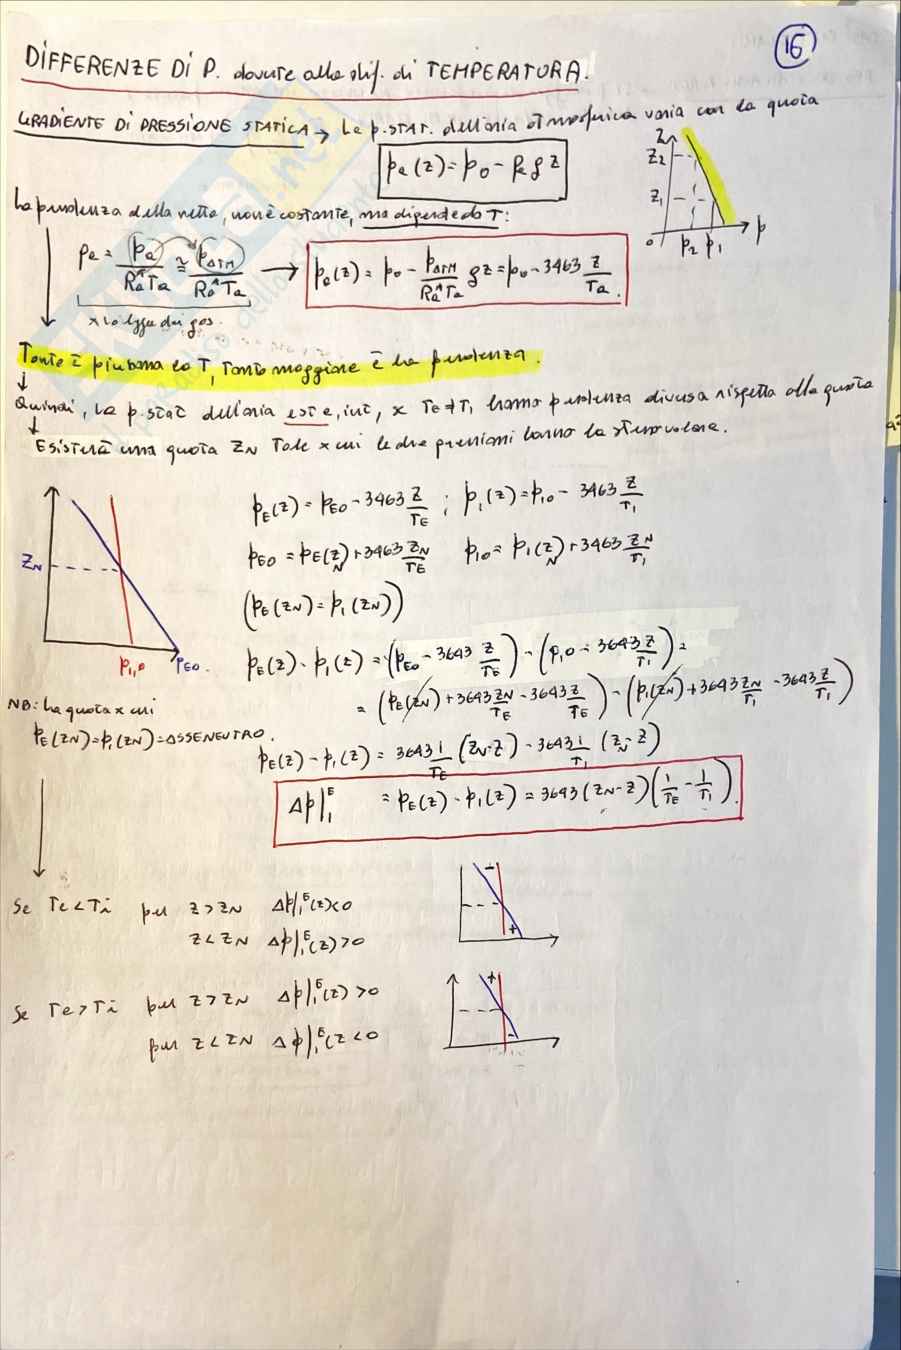 16
DIFFERENZE DI P. dovute alla dif. di TEMPERATURA.
GRADIENTE DI PRESSIONE STATICA → La p.STAT. dell'aria atmosferica varia con la quota
pa(z) = p0 - ρa g z
z
z2
z1
0
p2 p1 p
La pendenza della retta, non è costante, ma dipende da T:
ρa = pa / (Ra* Ta) ≅ pATM / (Ra* Ta) → pa(z) = p0 - pATM / (Ra* Ta) g z = p0 - 3463 z/Ta.
x la legge dei gas
Tanto è più bassa la T, Tanto maggiore è la pendenza.
Quindi, la p.stat dell'aria est e, int, x Te≠Ti hanno pendenza diversa rispetto alla quota
Esisterà una quota ZN Tale x cui le due pressioni hanno lo stesso valore.
pE(z) = pE0 - 3463 z/TE ; pI(z) = pI0 - 3463 z/TI
ZN
pE0 = pE(zN) + 3463 ZN/TE pI0 = pI(zN) + 3463 ZN/TI
(pE(ZN) = pI(ZN))
pI,0 pE0.
pE(z) - pI(z) = (pE0 - 3643 z/TE) - (pI0 - 3643 z/TI) =
= (pE(ZN) + 3643 ZN/TE - 3643 z/TE) - (pI(ZN) + 3643 ZN/TI - 3643 z/TI)
NB: La quota x cui
pE(ZN) = pI(ZN) = ASSE NEUTRO.
pE(z) - pI(z) = 3643 1/TE (ZN-z) - 3643 1/TI (ZN-z)
Δp|I^E = pE(z) - pI(z) = 3643 (ZN-z) (1/TE - 1/TI).
Se Te < Ti per z > ZN Δp|I^E(z) < 0
- +
z < ZN Δp|I^E(z) > 0
Se Te > Ti per z > ZN Δp|I^E(z) > 0
+ -
per z < ZN Δp|I^E(z < 0